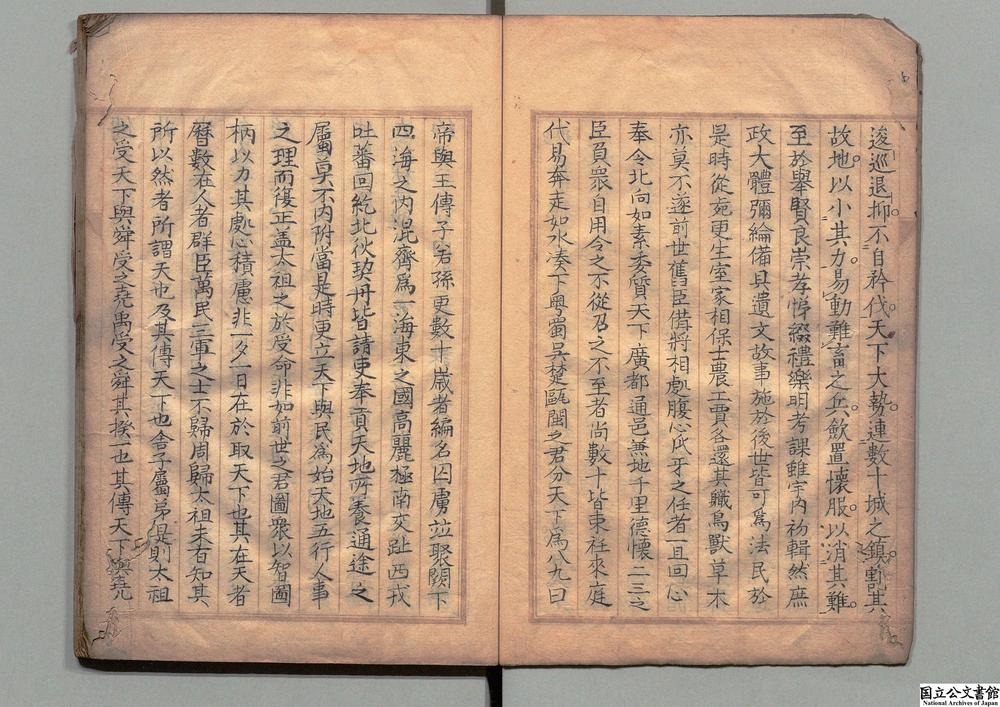 逡巡退抑不自矜伐天下大勢連數十城之鎮割其
故地以小其力易動難畜之兵歛置懷服以消其難
至於舉賢良崇孝悌綴禮樂明考課雖宇內初輯然庶
政大體彌綸備具遺文故事施於後世皆可爲法民於
是時從死更生室家相保士農工賈各還其職鳥獸草木
亦莫不遂前世舊臣借將相處腹心爪牙之任者一旦回心
奉令北向如素委質天下廣都通邑兼地千里德懷二三之
臣負衆自用令之不從召之不至者尚數十皆束衽來庭
代易奔走如水湊下粤蜀吳楚甌閩之君分天下爲八九曰
帝與王傳子若孫更數十歲者編名囚虜竝聚闕下
四海之內混齊爲一海東之國高麗極南交趾西戎
吐蕃回紇北狄㓪丹皆請吏奉貢天地所養通途之
屬莫不內附當是時更立天下與民爲始天地五行人事
之理而復正盖太祖之於受命非如前世之君圖衆以智圖
柄以力其處心積慮非一夕一日在於取天下也其在天者
曆數在人者群臣萬民三軍之士不歸周歸太祖未有知其
所以然者所謂天也及其傳天下也舍子屬弟俱則太祖
之受天下與舜受之堯禹受之舜其揆一也其傳天下與堯
国立公文書館
National Archives of Japan